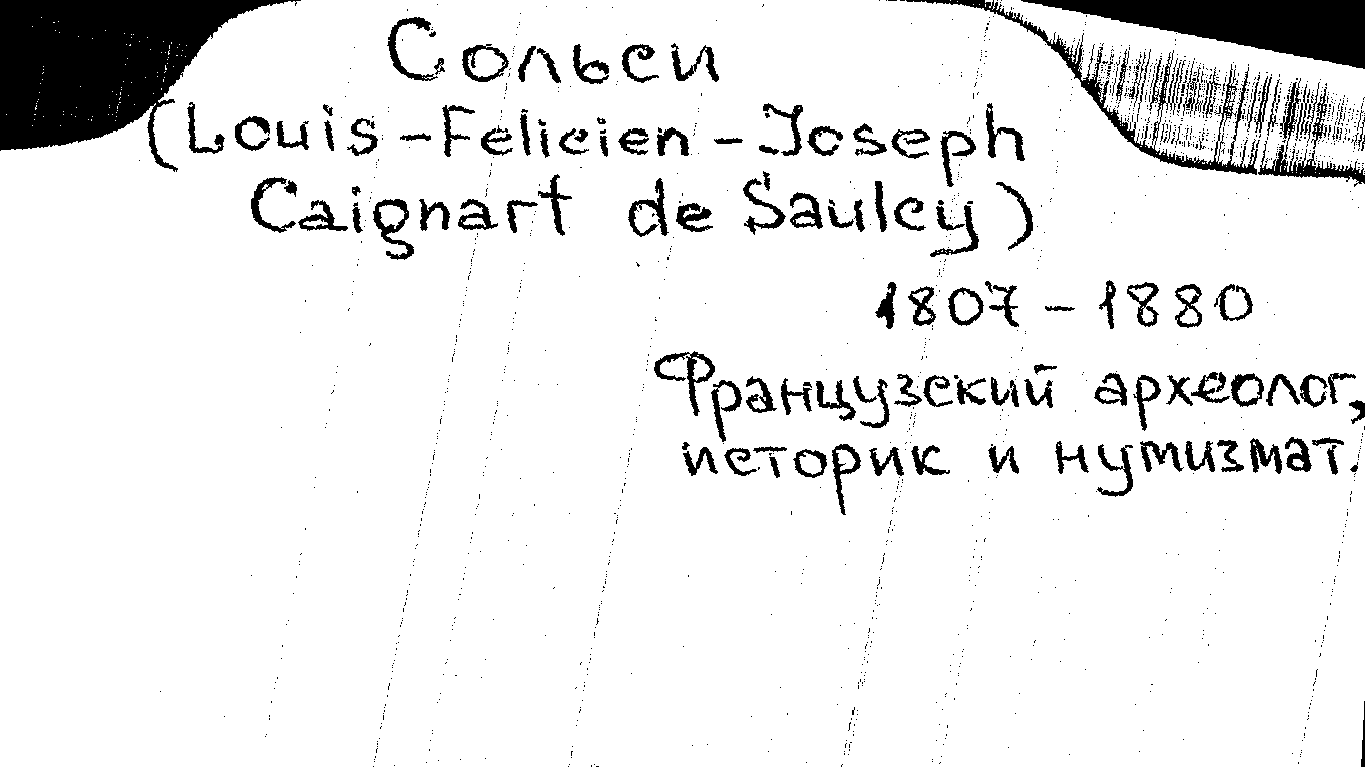 Сольси
(Louis-Felicien-Joseph
Caignart de Saulcy)
1807-1880
Французский археолог,
историк и нумизмат.